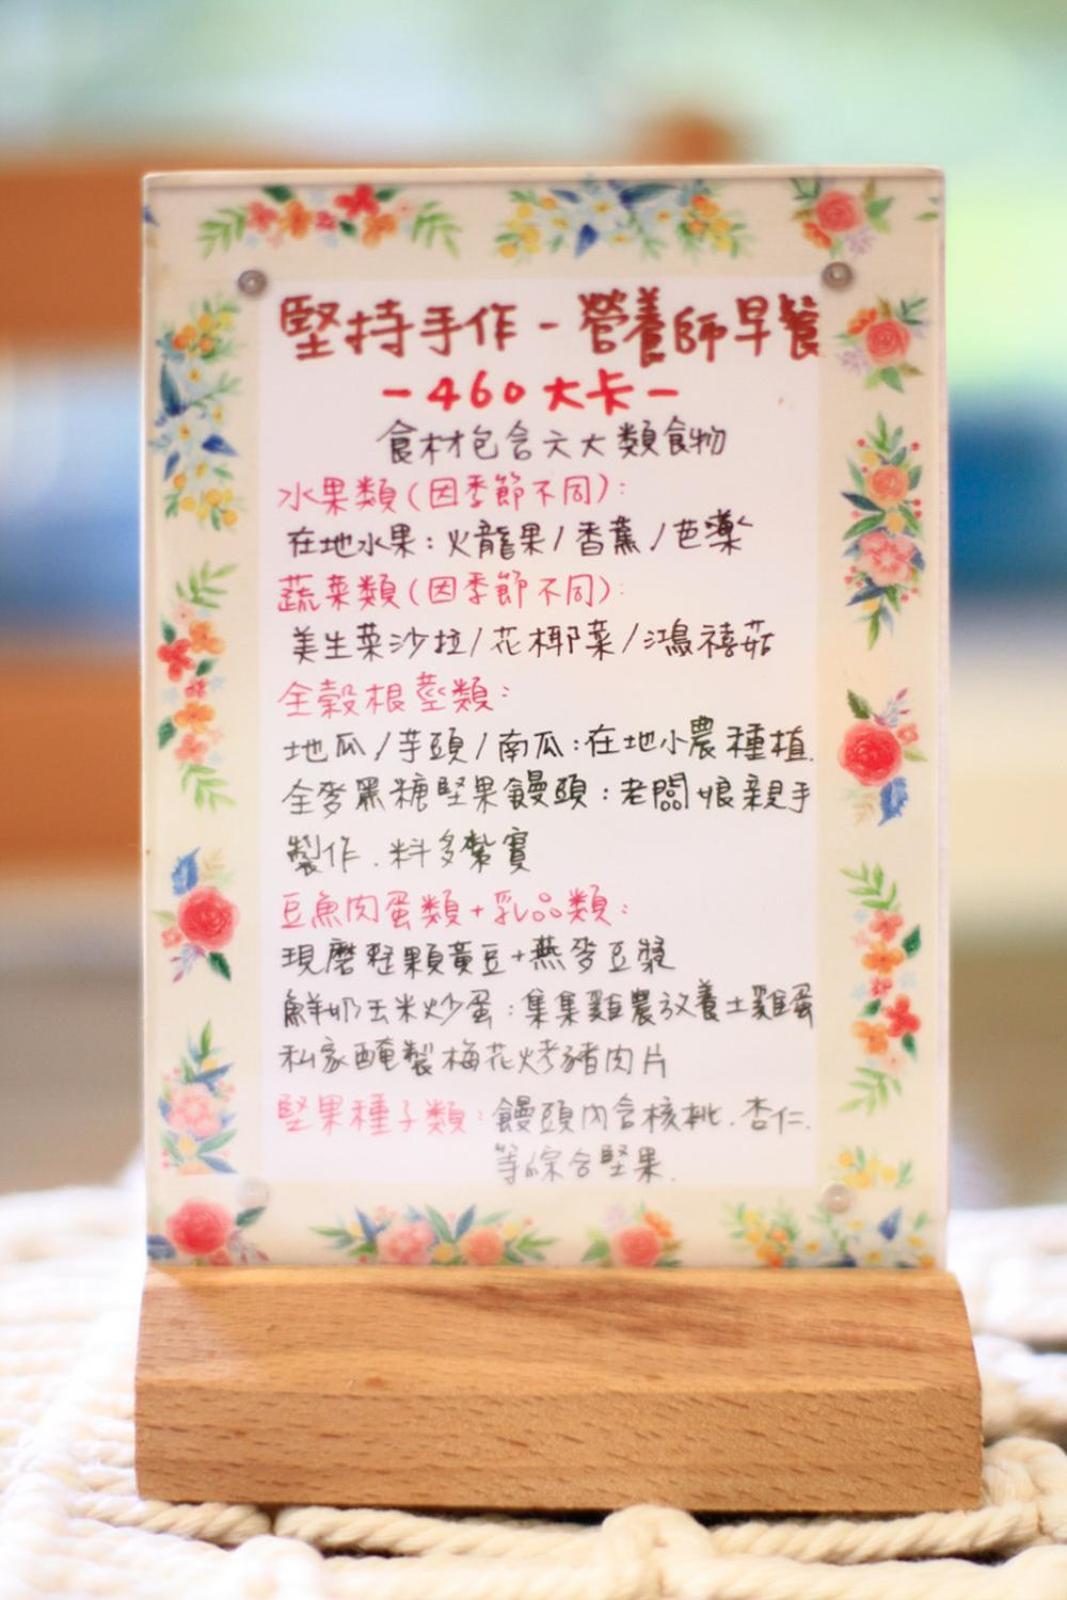 堅持手作-營養師早餐
-460大卡-
食材包含六大類食物
水果類(因季節不同):
在地水果:火龍果/香蕉/芭樂
蔬菜類(因季節不同):
美生菜沙拉/花椰菜/鴻禧菇
全穀根莖類:
地瓜/芋頭/南瓜:在地小農種植.
全麥黑糖堅果饅頭:老闆娘親手
製作.料多紮實
豆魚肉蛋類+乳品類:
現磨整顆黃豆+燕麥豆漿
鮮奶玉米炒蛋:集集雞農放養土雞蛋
私家醃製梅花烤豬肉片
堅果種子類:饅頭內含核桃.杏仁.
等綜合堅果.